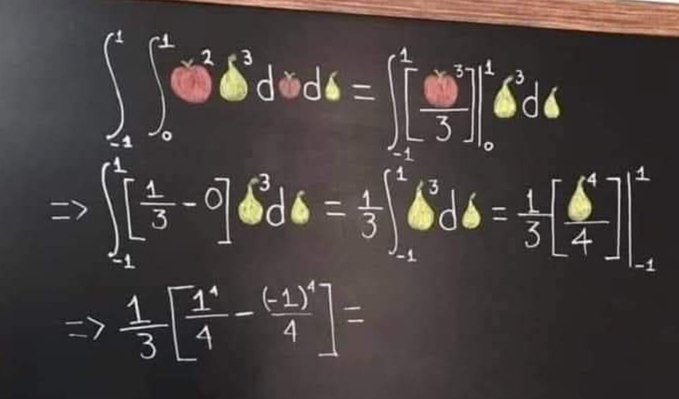 ∫₋₁¹ ∫₀¹ 🍎² 🍐³ d🍎d🍐 = ∫₋₁¹ [🍎³/3]|₀¹ 🍐³ d🍐
=> ∫₋₁¹ [1/3 - 0] 🍐³ d🍐 = 1/3 ∫₋₁¹ 🍐³ d🍐 = 1/3 [🍐⁴/4]|₋₁¹
=> 1/3 [1⁴/4 - (-1)⁴/4] =